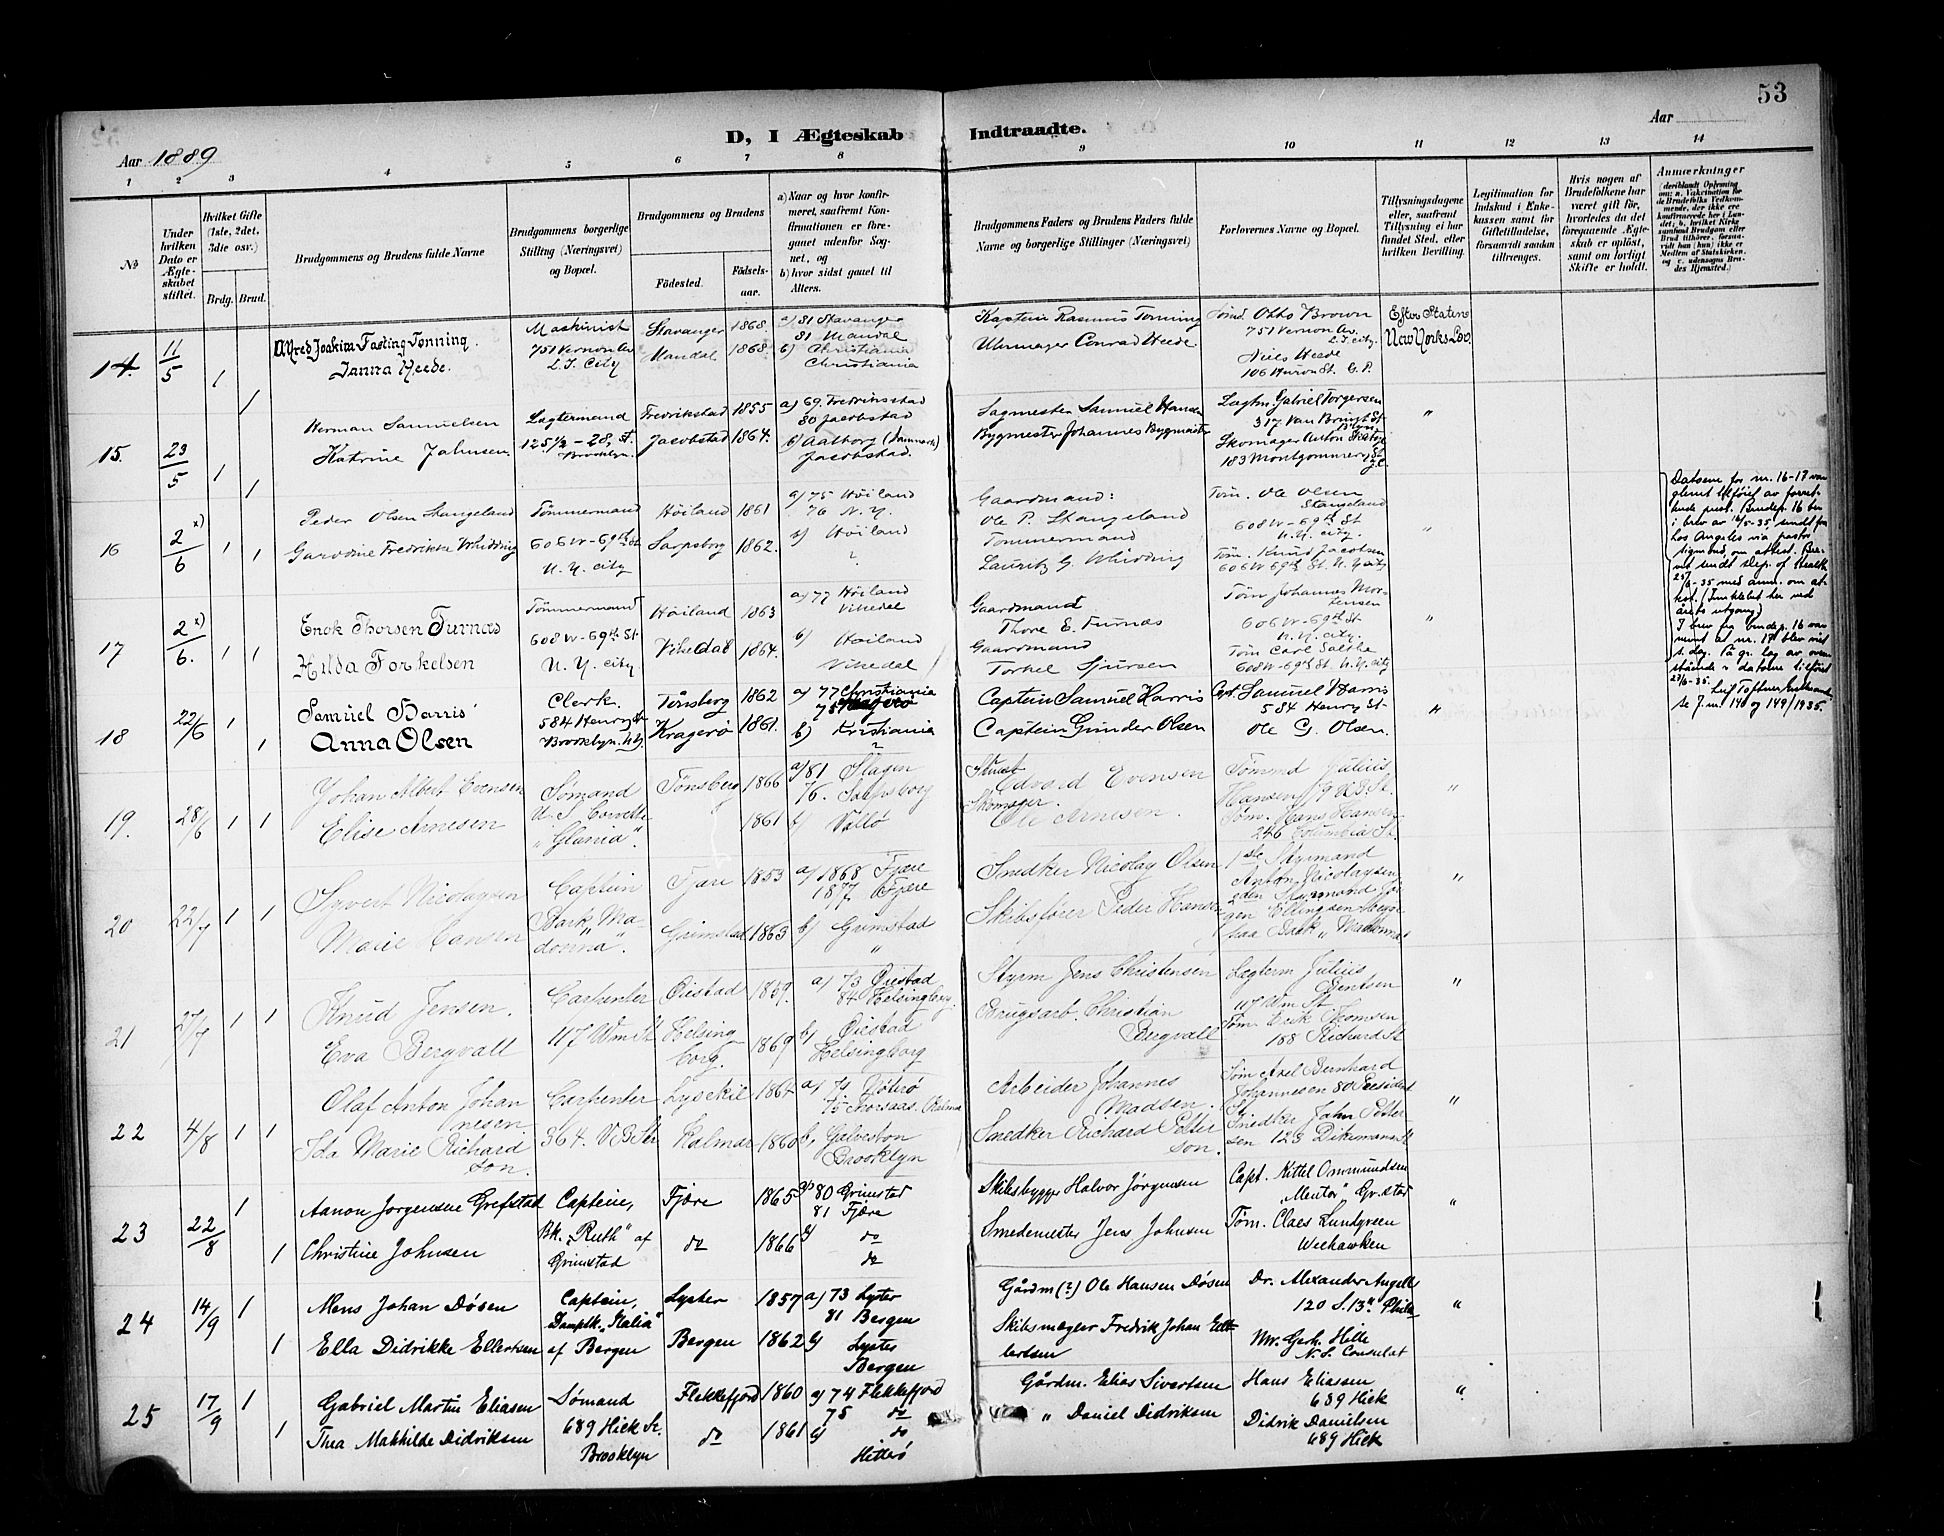 53
D, I Ægteskab Indtraadte.
Aar 1889
Aar
1 2 3 4 5 6 7 8 9 10 11 12 13 14
No
Under hvilken Dato er Ægteskabet stiftet.
Hvilket Gifte (1ste, 2det, 3dte osv.)
Brdg. Brud.
Brudgommens og Brudens fulde Navne
Brudgommens borgerlige Stilling (Næringsvei) og Bopæl.
Brudgommens og Brudens
Födested.
Födselsaar.
a) Naar og hvor konfirmeret, saafremt Konfirmationen er foregaaet udenfor Sognet, og
b) hvor sidst gaaet til Alters.
Brudgommens Faders og Brudens Faders fulde Navne og borgerlige Stillinger (Næringsvei)
Forlovernes Navne og Bopæl.
Tillysningsdagene eller, saafremt Tillysning ei har fundet Sted, efter hvilken Bevilling.
Legitimation for Indskud i Enkekassen samt for Giftetilladelse, forsaavidt saadan tiltrænges.
Hvis nogen af Brudefolkene har været gift før, hvorledes da det foregaaende Ægteskab er oplöst, samt om lovligt Skifte er holdt.
Anmærkninger
14. 11/5 1 1
Alfred Joakim Fasting Tønning.
Janna Heede.
Maskinist
751 Vernon Av.
L. I. City
Stavanger 1868.
Mandal 1868.
a) 81 Stavanger
81 Mandal
b) Christiania
Christiania
Kaptein Rasmus Tønning
Uhrmager Conrad Heede.
Otto Brown
751 Vernon Av.
L. I. City.
Niels Heede
106 Huron St. G. P.
Efter Staten
New Yorks Lov.
15. 23/5 1 1
Herman Samuelsen
Katrine Johnsen
Lægtermand
125 1/2 - 28. St.
Brooklyn.
Fredrikstad 1855
Jacobstad 1864.
a) 69. Fredriksstad
80 Jacobstad
b) Aalborg (Danmark)
Jacobstad.
Sagmester Samuel Hansen
Bygmester Johannes Bygmester
Lægtm. Gabriel Torgersen
317 Van Brunt St.
Skomager Anton
183 Montgommery St.
J. C.
"
16 2 x)/6 1 1
Peder Olsen Stangeland
Garodine Fredrikke Whidding
Tømmermand
606 W-69th St
N. Y. City
Høiland 1861
Sarpsborg 1862.
a) 75 Høiland
76 N. Y.
b) Høiland
?
Gaardmand:
Ole P. Stangeland
Tømmermand
Lauritz G. Whidding
Tøm. Ole Olsen
Stangeland
608 W-69th St
N. Y. City.
Tøm. Knud Jacobsen
606 W 69th St. N. Y City
"
17 2 x)/6. 1 1
Enok Thorsen Furnæs
Hilda Torkelsen
Tømmermand
608 W-69th St.
N. Y. City
Høiland 1863
Vikedal 1864.
a) 77 Høiland
Vikedal
b) Høiland
Vikedal
Gaardmand
Thore E. Furnæs
Gaardmand
Torkel Sjursen
Tøm Johannes Mortensen
606 W-69th St.
N. Y. City.
Tøm Carl Salthe
608 W-69th St. N. Y. City
"
18 22/6 1 1
Samuel Harris
Anna Olsen
Clerk.
584 Henry St.
Brooklyn. N.Y.
Tønsberg 1862
Kragerø 1861.
a) 77 Christiania
75 Kragerø
b) Kristiania
?
Captein Samuel Harris
Captein Gunder Olsen
Cpt. Samuel Harris
584 Henry St
Ole G. Olsen.
"
19. 28/6 1 1
Johan Albert Evensen
Elise Arnesen
Sømand
U. S. Corvette
Tønsberg 1866
1861
a) 81 Slagen
76. Sarpsborg
b) Vallø
Edvard Evensen
Skomager.
Ole Arnesen.
Sømnd Julius
Hansen
Tøm. Hans Hansen
246 Columbia St.
"
20 22/7 1 1
Syvert Nicolaysen
Marie Hansen
Captein
Bark „Madonna“.
Fjære 1853
Grimstad 1863
a) 1868 Fjære
1877 Fjære
b) Grimstad
"
Snedker Nicolay Olsen
Skibsfører Peder Hansen
1ste Styrmand
Anton Nicolaysen
2den Styrmand
Ellingsen begge
paa Bark „Madonna“
"
21 27/7 1 1
Knud Jensen.
Eva Bergvall
Carpenter
117 Wm St
Øiestad 1859.
Helsingborg. 1869
a) 73 Øiestad
84 Helsingborg.
b) Øiestad
Helsingborg
Styrm Jens Christensen
Brugsarb. Christian
Bergvall
Lægterm Julius
Bentsen
117 Wm St
Tøm Erik Thomsen
188 Richard St
"
22 4/8 1 1
Olaf Anton Johannesen
Ida Marie Richardson.
Carpenter
364. V B Str
Lysekil 1864
Kalmar 1860
a) 74
75 Thorsaas. Kalmar
b) Galveston
Brooklyn
Arbeider Johannes
Madsen.
Snedker Richard Petterson.
Tøm Axel Bernhard
Johannesen 80 President
St
Snedker John Pettersen 123 Dikemann St
"
23 22/8 1 1
Aanon Jørgensen Grefstad
Christine Johnsen
Captein,
Bk. „Ruth“ af
Grimstad
Fjære 1865
do 1866
a) 80 Grimstad
81 Fjære
b) do
do
Skibsbygger Halvor Jørgensen
Smedemester Jens Johnsen
Capt. Kittel Ommundsen
„Mentor“, Gr.stad
Tøm. Claes Lundgreen
Weehawken
"
24 14/9 1 1
Mons Johan Døsen
Ella Didrikke Ellertsen
Captein,
Dampsk. „Italia“
af Bergen
Lyster 1857
Bergen 1862
a) 73 Lyster
81 Bergen
b) Lyster
Bergen
Gårdm (?) Ole Hansen Døsen
Skibsmægler Fredrik Johan Ellertsen
Dr. Alexander Angell
120 S. 13th. Phila
Mr. Gerh. Hille
N. S. Consulat
"
25 17/9 1 1
Gabriel Martin Eliasen
Thea Mathilde Didriksen
Sømand
689 Hick St.
Brooklyn
Flekkefjord 1860
do 1861
a) 74 Flekkefjord
75 do
b) do
Hitterø
Gårdm. Elias Sivertsen
" Daniel Didriksen
Hans Eliassen
689 Hick
Didrik Danielsen
689 Hick
"
Datoen for nr. 16-17 var
glemt tilføiet av forrettende prest. Brudep. 16 ber
i brev av 16/5-35 sendt fra
Los Angeles via pastor
Sigmond, om attest.
sendt Dep. of Health
25/6-35 med anm. om attest. (Innklebet her ved
årets utgang)
I brev fra brudep. 16 var
nevnt at nr. 17 blev viet
s. dag. På gr. lag av ovenstående er datoene tilføiet
27/6-35.
se J. nr. 140 og 149/1935.